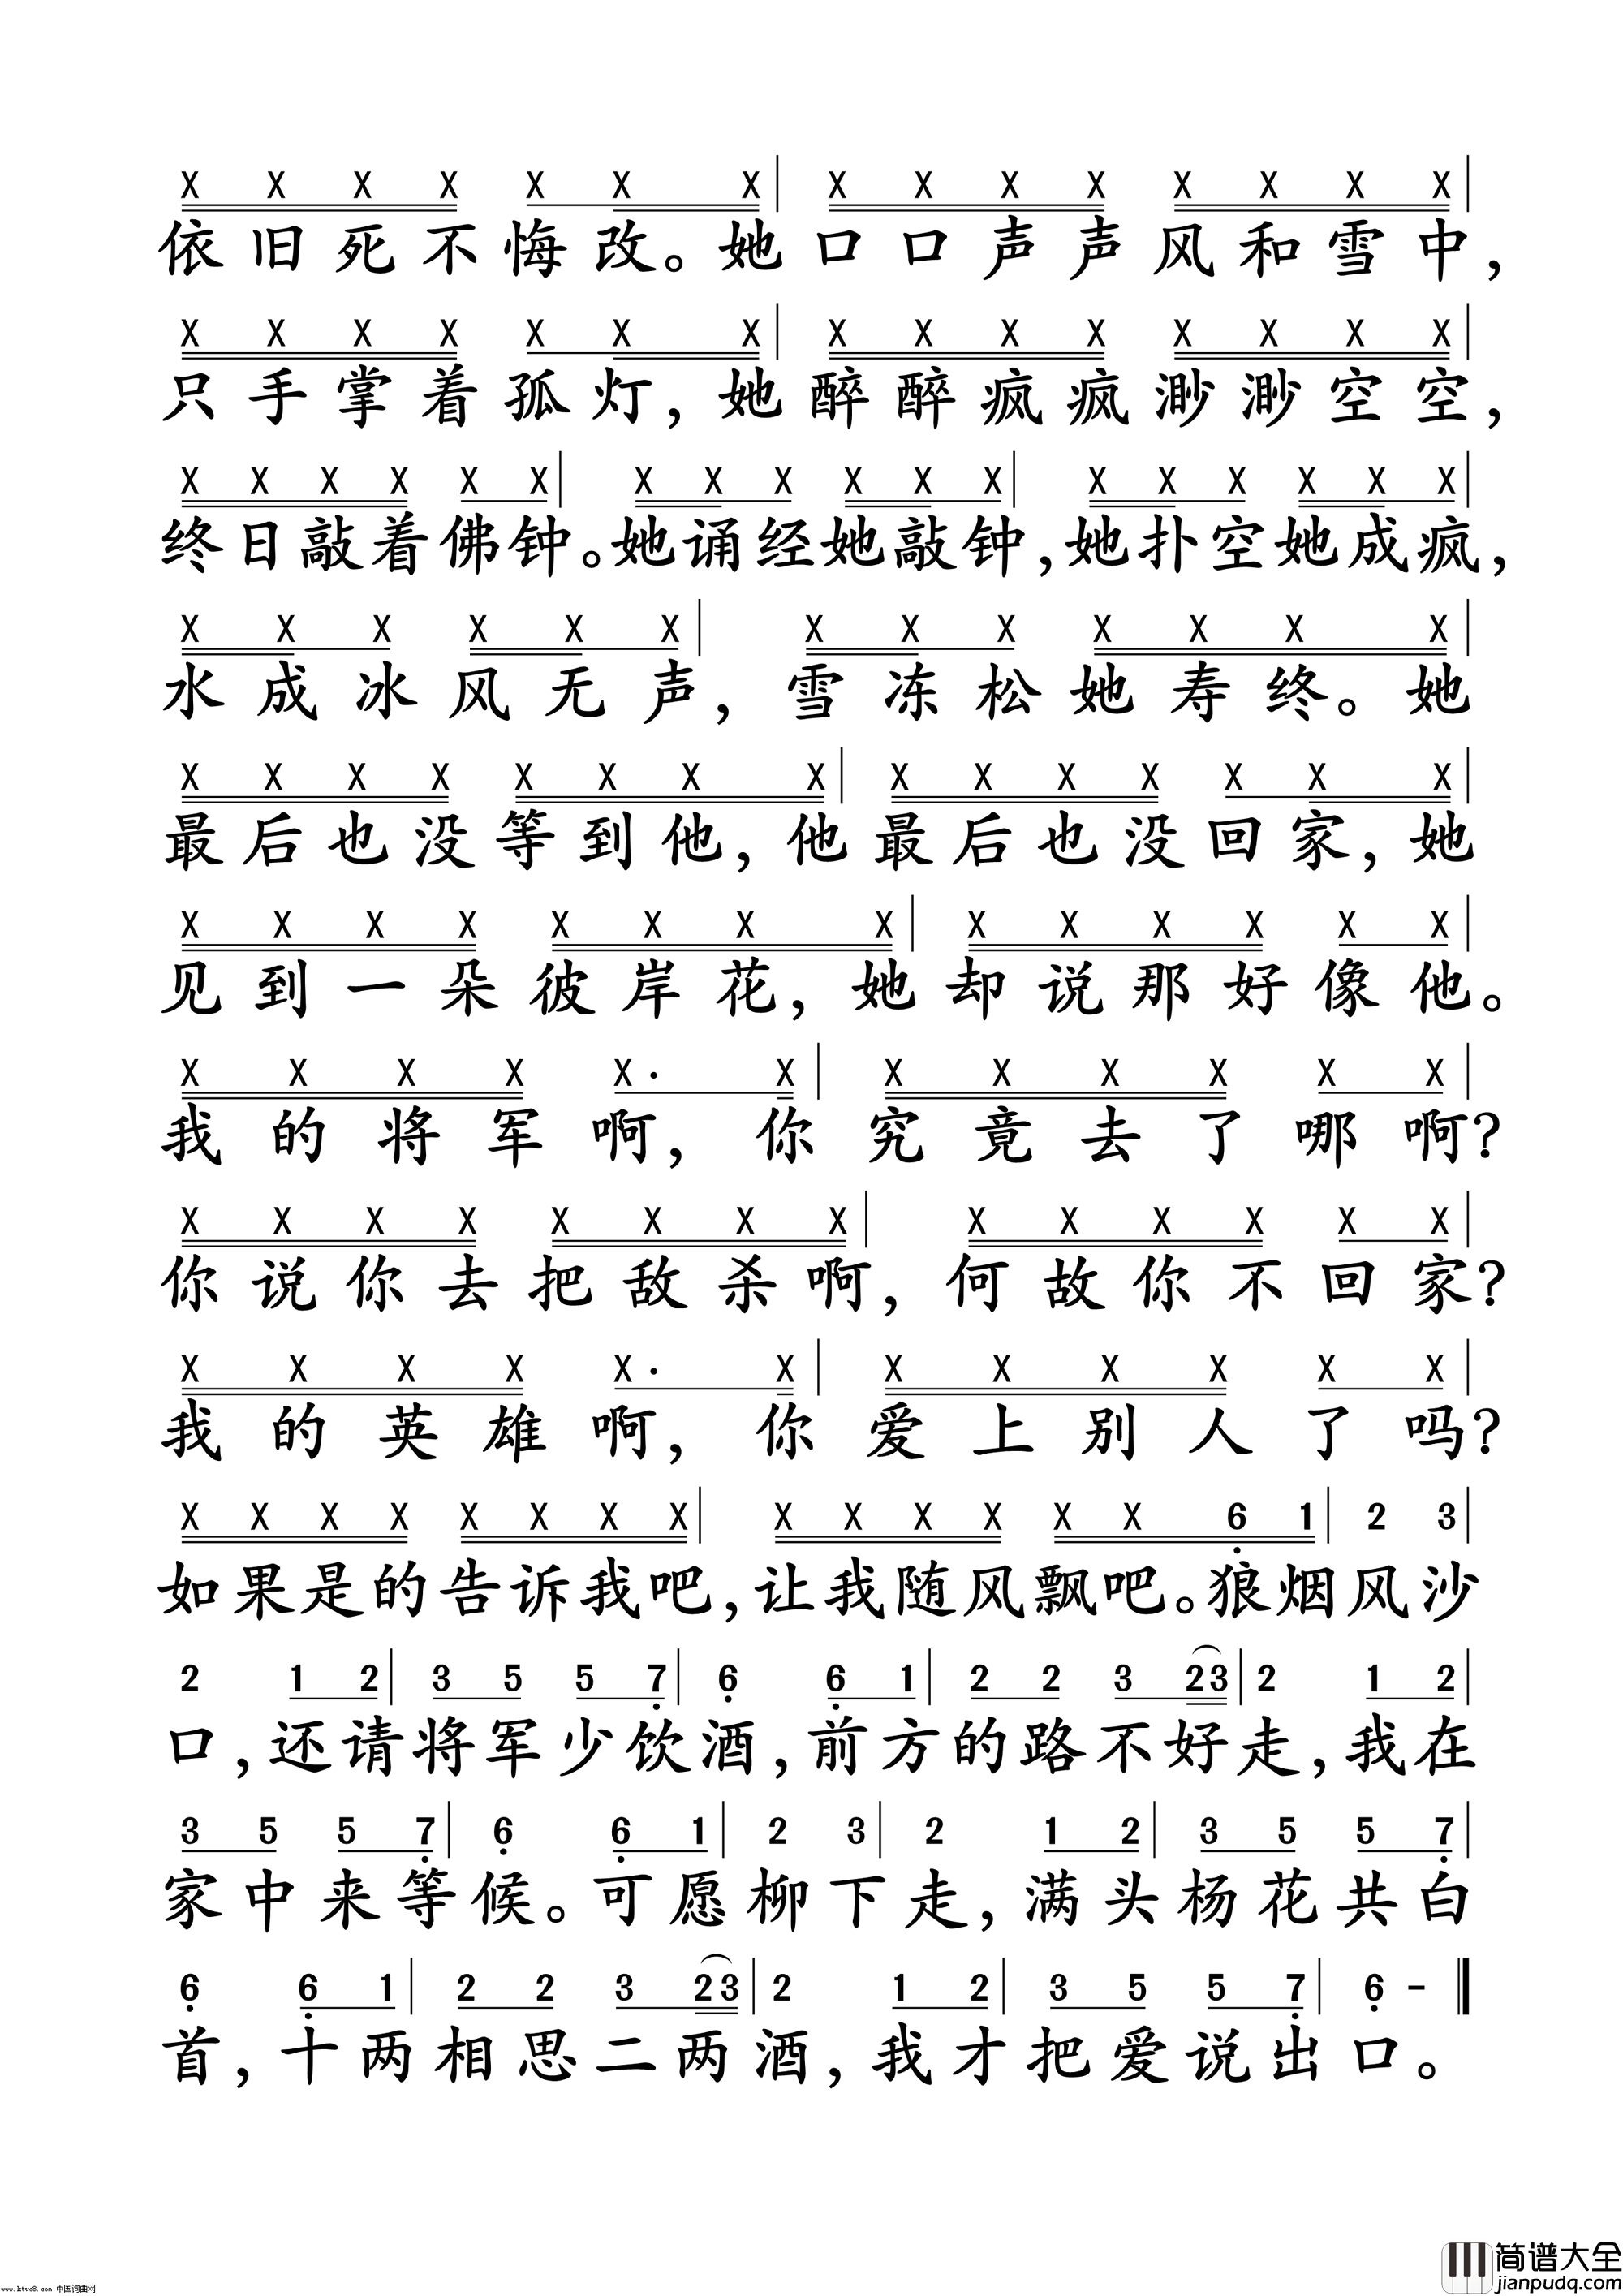 X X X X X X X | X X X X X X X X |
依旧死不悔改。她口口声声风和雪中，
X X X X X X X | X X X X X X X X |
只手掌着孤灯，她醉醉疯疯渺渺空空，
X X X X X X | X X X X X X | X X X X X X |
终日敲着佛钟。她诵经她敲钟，她扑空她成疯，
X X X X X X | X X X X X X X |
水成冰风无声，雪冻松她寿终。她
X X X X X X X X | X X X X X X X |
最后也没等到他，他最后也没回家，她
X X X X X X X X | X X X X X X |
见到一朵彼岸花，她却说那好像他。
X X X X X· X | X X X X X X |
我的将军啊，你究竟去了哪啊？
X X X X X X X X | X X X X X X |
你说你去把敌杀啊，何故你不回家？
X X X X X· X | X X X X X X |
我的英雄啊，你爱上别人了吗？
X X X X X X X X | X X X X X X 6 1 | 2 3 |
如果是的告诉我吧，让我随风飘吧。狼烟风沙
2 1 2 | 3 5 5 7 | 6 6 1 | 2 2 3 2 3 | 2 1 2 |
口，还请将军少饮酒，前方的路不好走，我在
3 5 5 7 | 6 6 1 | 2 3 | 2 1 2 | 3 5 5 7 |
家中来等候。可愿柳下走，满头杨花共白
6 6 1 | 2 2 3 2 3 | 2 1 2 | 3 5 5 7 | 6 - ‖
首，十两相思二两酒，我才把爱说出口。
简谱大全
jianpudq.com
www.ktvc8.com 中国词曲网